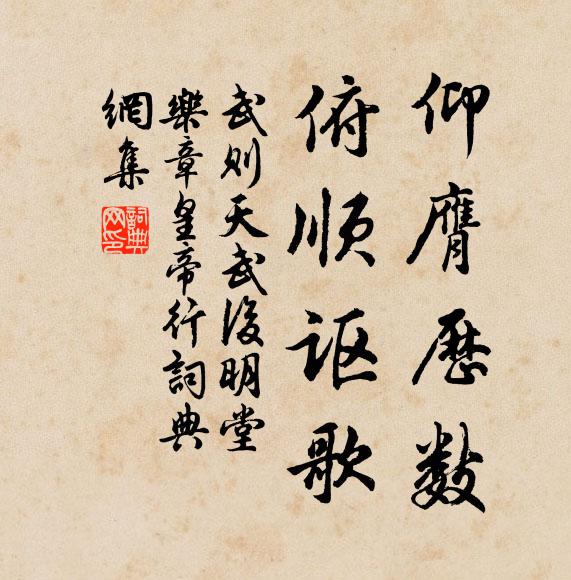 仰膺歷数
俯順讴歌
武则天武後明堂
樂章皇帝行詞典
網集
詞典网印